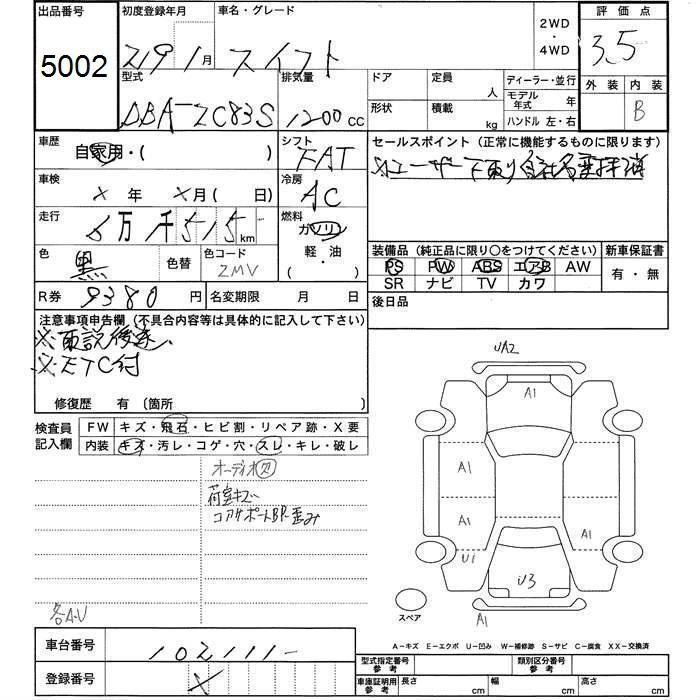 出品番号 初度登録年月 車名・グレード 2WD・4WD 評価点
5002 月 スイフト 3.5
型式 排気量 ドア 定員 人 ディーラー・並行 外装 内装
DBA-ZC83S 1200 CC 形状 積載 kg モデル年式 年 ハンドル 左・右 B
車歴 自家用・( ) シフト FAT セールスポイント (正常に機能するものに限ります)
車検 × 年 ×月( 日) 冷房 AC
走行 万 千515 km 燃料 ガソリン 軽・油 ・( )
色 黒 色替 色コード ZMV
装備品 (純正品に限り○をつけてください) 新車保証書
PS PW ABS エアB AW 有・無
SR ナビ TV カワ
R券 9380 円 名変期限 月 日 後日品
注意事項申告欄 (不具合内容等は具体的に記入して下さい)
※ETC付
修復歴 有 〔箇所 〕
検査員記入欄 FW キズ・飛石・ヒビ割・リペア跡・X要
内装 キズ・汚レ・コゲ・穴・スレ・キレ・破レ
オーディオ欠
荷室キズ
コアサポートBP歪み
各A.U
UA2
A1
A1
A1
A1
U1
U3
A1
スペア
A-キズ E-エクボ U-凹み W-補修跡 S-サビ C-腐食 XX-交換済
車台番号 102111-
登録番号 ×
型式指定番号 参考 類別区分番号 参考
車庫証明用 参考 長さ cm 幅 cm 高さ cm